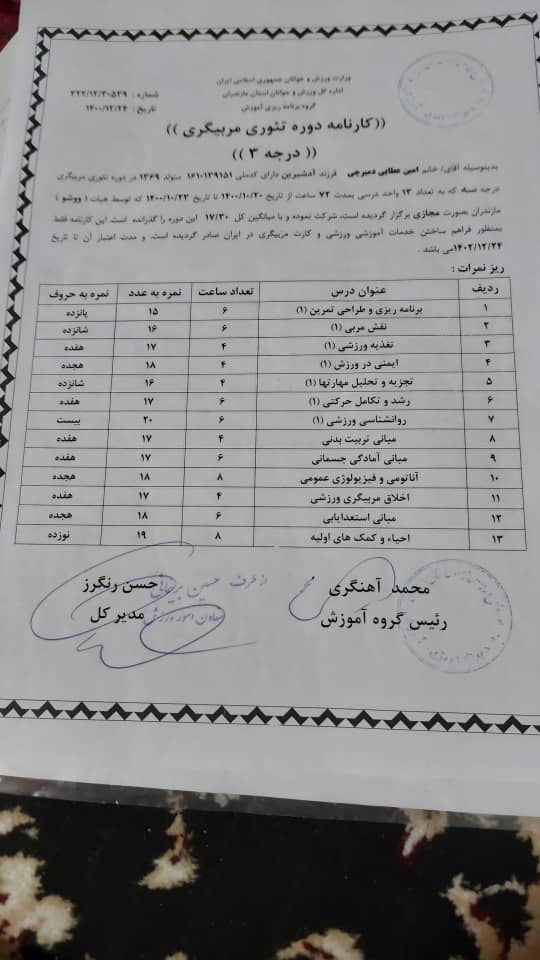 وزارت ورزش و جوانان جمهوری اسلامی ایران
اداره کل ورزش و جوانان استان مازندران
گروه برنامه ریزی آموزش
شماره : ۳۲۲/۱۲/۳۰۵۳۹
تاریخ : ۱۴۰۰/۱۲/۲۴
((کارنامه دوره تئوری مربیگری ))
(( درجه ۳ ))
بدینوسیله آقای/ خانم امین عطایی دمیرچی فرزند آدشیرین دارای کدملی ۱۶۱۰۱۳۹۱۵۱ متولد ۱۳۶۹ در دوره تئوری مربیگری
درجه سه که به تعداد ۱۳ واحد درسی بمدت ۷۲ ساعت از تاریخ ۱۴۰۰/۱۰/۲۰ تا تاریخ ۱۴۰۰/۱۰/۲۳ که توسط هیات ( ووشو )
مازندران بصورت مجازی برگزار گردیده است، شرکت نموده و با میانگین کل ۱۷/۳۰ این دوره را گذرانده است. این کارنامه فقط
بمنظور فراهم ساختن خدمات آموزشی ورزشی و کارت مربیگری در ایران صادر گردیده است. و مدت اعتبار آن تا تاریخ
۱۴۰۲/۱۲/۲۴می باشد .
ریز نمرات :
ردیف عنوان درس تعداد ساعت نمره به عدد نمره به حروف
۱ برنامه ریزی و طراحی تمرین (۱) ۶ ۱۵ پانزده
۲ نقش مربی (۱) ۶ ۱۶ شانزده
۳ تغذیه ورزشی (۱) ۴ ۱۷ هفده
۴ ایمنی در ورزش (۱) ۴ ۱۸ هجده
۵ تجزیه و تحلیل مهارتها (۱) ۴ ۱۶ شانزده
۶ رشد و تکامل حرکتی (۱) ۶ ۱۷ هفده
۷ روانشناسی ورزشی (۱) ۶ ۲۰ بیست
۸ مبانی تربیت بدنی ۴ ۱۷ هفده
۹ مبانی آمادگی جسمانی ۶ ۱۷ هفده
۱۰ آناتومی و فیزیولوژی عمومی ۸ ۱۸ هجده
۱۱ اخلاق مربیگری ورزشی ۴ ۱۷ هفده
۱۲ مبانی استعدادیابی ۶ ۱۸ هجده
۱۳ احیاء و کمک های اولیه ۸ ۱۹ نوزده
محمد آهنگری
رئیس گروه آموزش
از طرف حسین
معاون امور ورزش
حسن رنگرز
مدیر کل